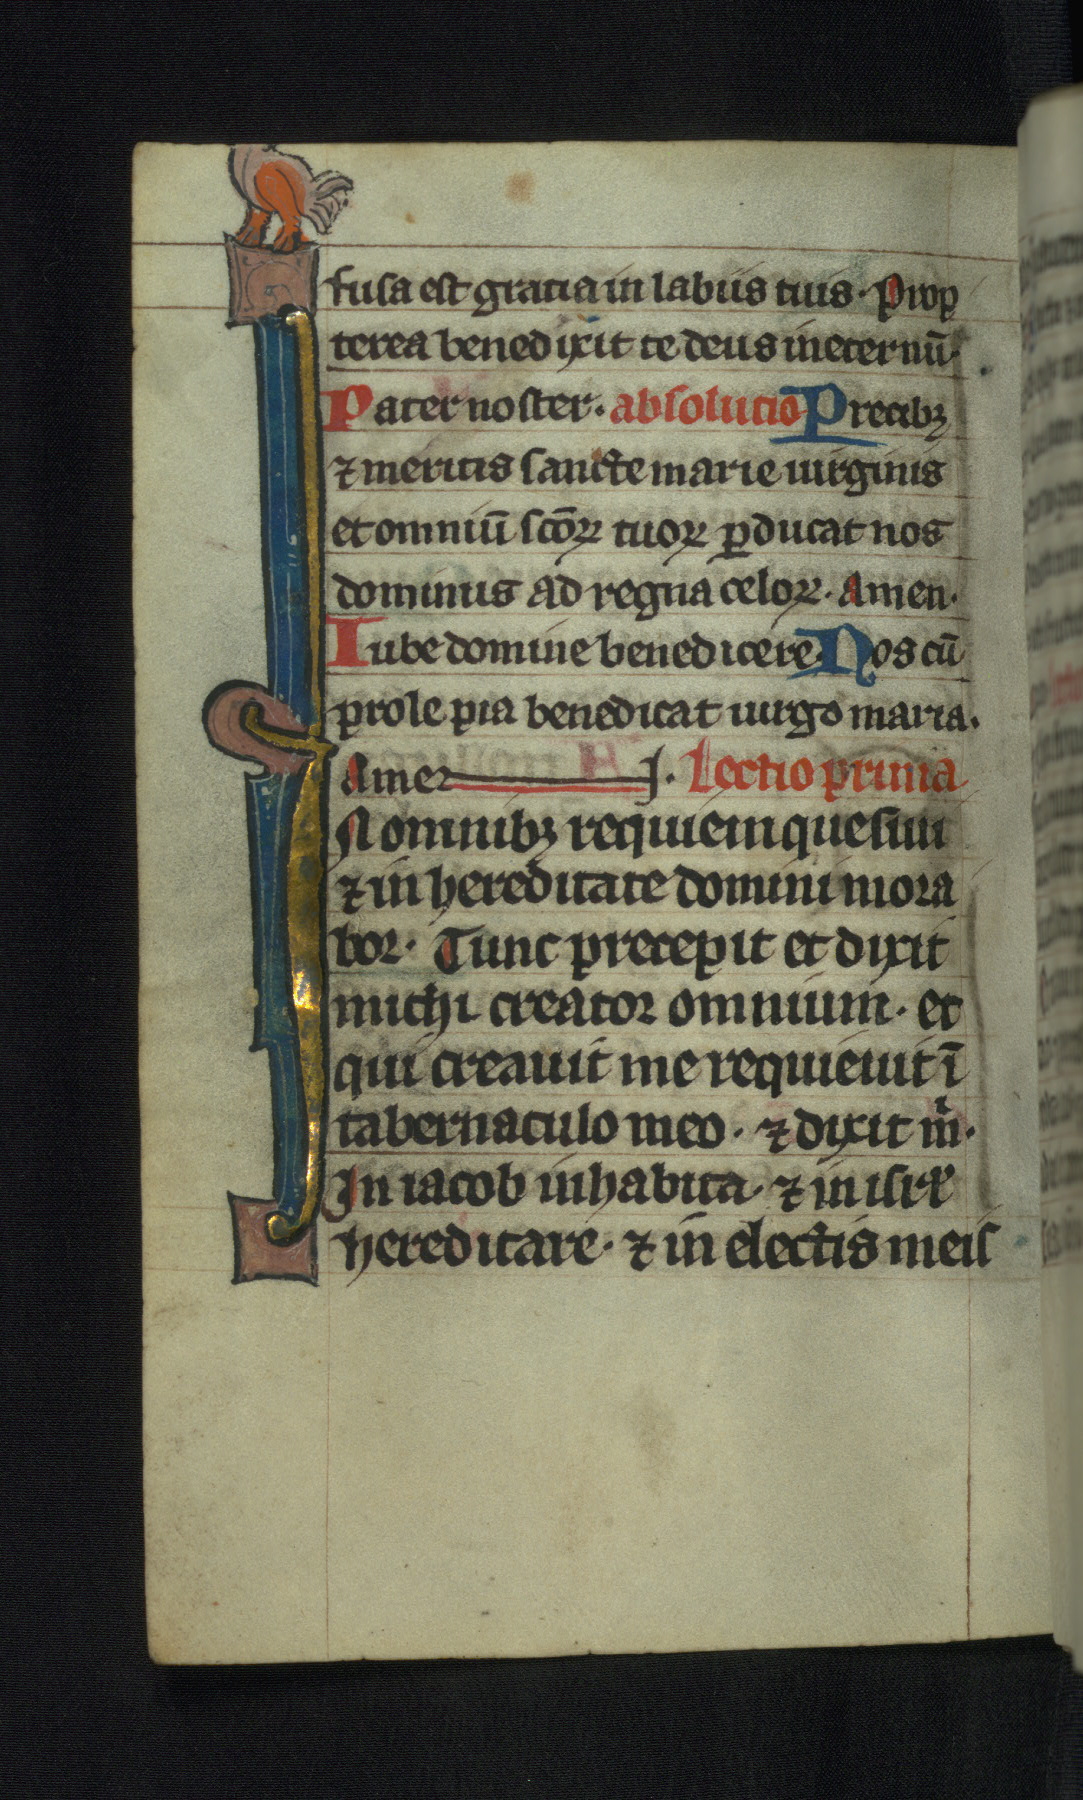 fusa est gracia in labiis tuis · Prop
terea benedixit te deus in eternū·
Pater noster· absolucio Precibꝫ
⁊ meritis sancte marie uirginis
et omniū scōꝝ tuoꝝ ꝑducat nos
dominus ad regna celoꝝ· Amen·
Iube domine benedicere· Nos cū
prole pia benedicat uirgo maria·
Amen· Lectio prima
N omnibꝫ requiem quesiui
⁊ in hereditate domini mora
bor· Tunc precepit et dixit
michi creator omnium· et
qui creauit me requieuit ī
tabernaculo meo· ⁊ dixit m̄·
In iacob inhabita· ⁊ in isrł
hereditare· ⁊ in electis meis